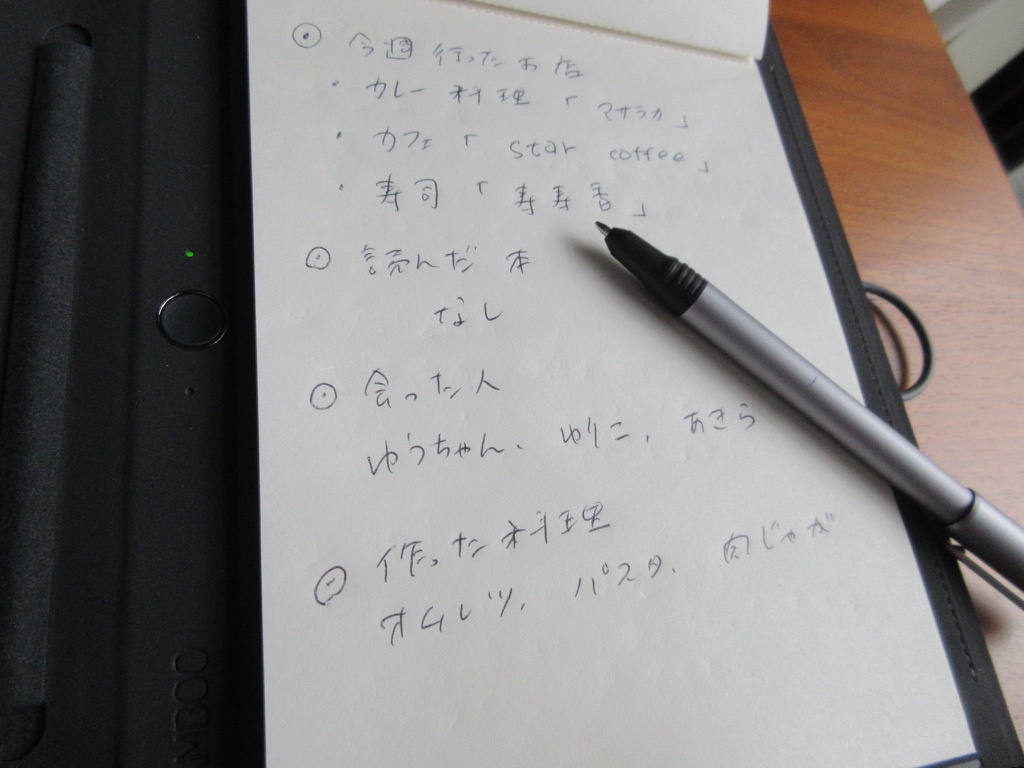 ◎ 今週行ったお店
・カレー料理「マサラカ」
・カフェ「star coffee」
・寿司「寿寿香」
◎ 読んだ本
なし
◎ 会った人
ゆうちゃん、ゆりこ、あきら
◎ 作った料理
オムレツ、パスタ、肉じゃが
MBOO